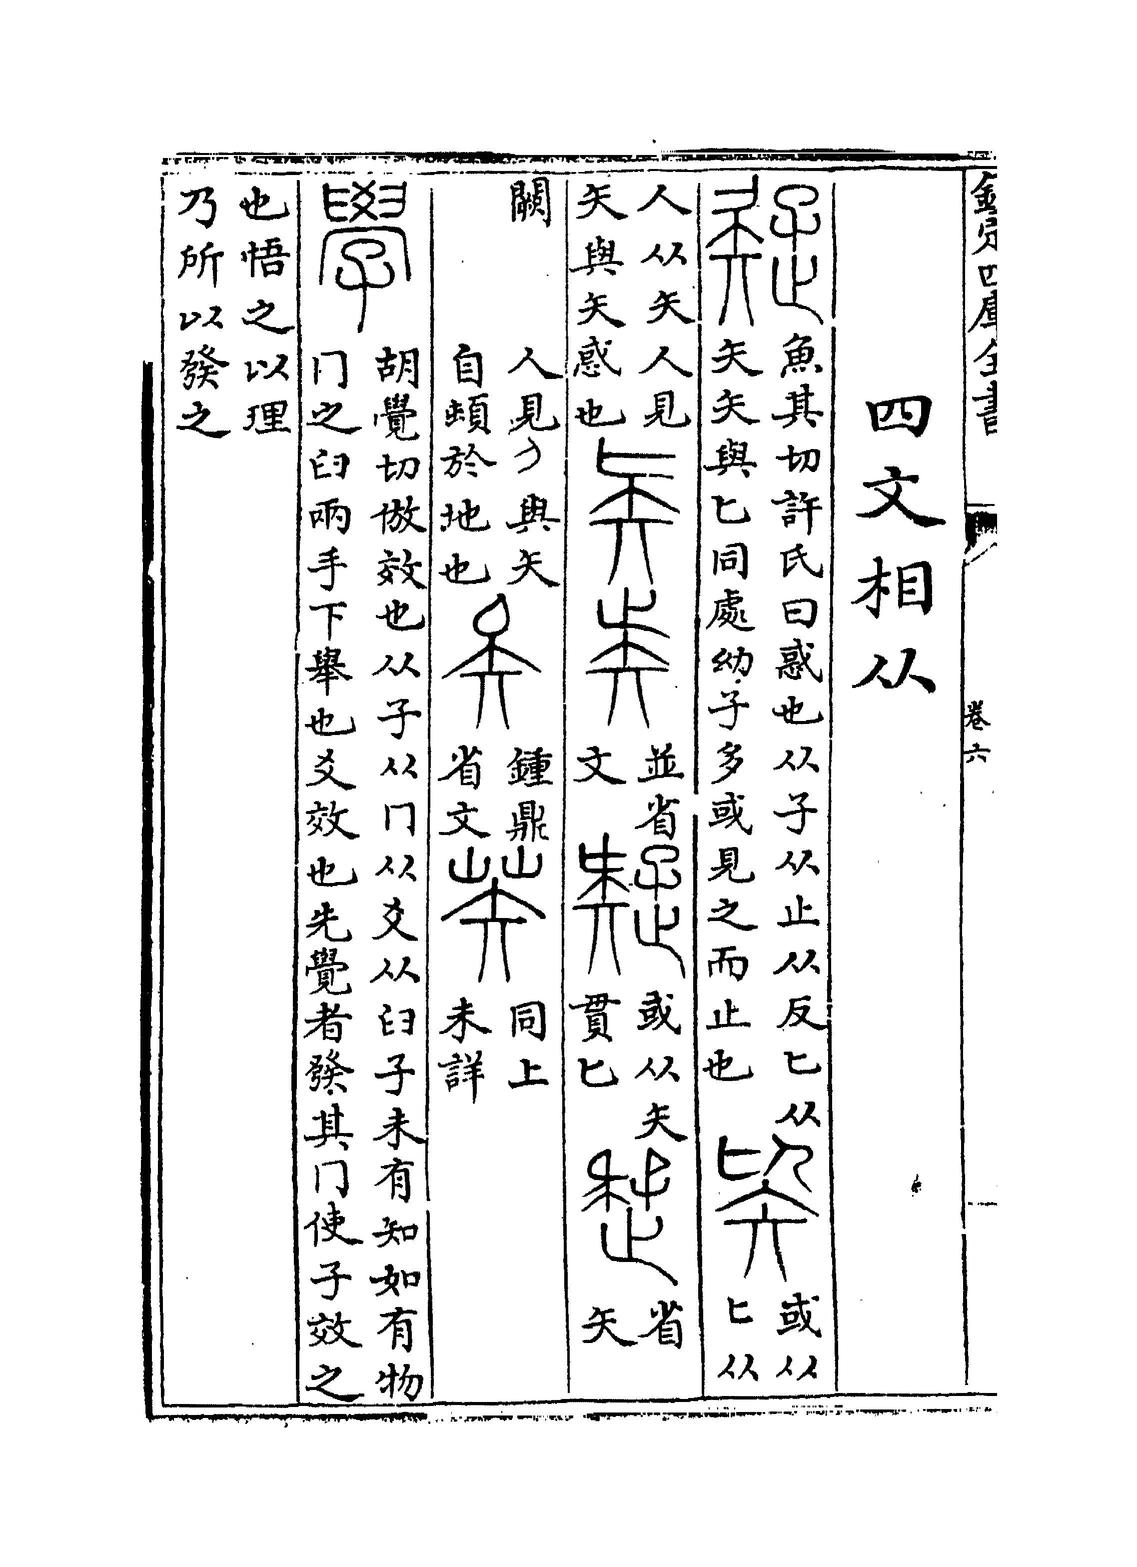 欽定四庫全書
卷六
四文相从
魚其切許氏曰惑也从子从止从反匕从
矢矢與匕同處幼子多或見之而止也
或从
匕从
人从矢人見
矢與矢惑也
並省
文
或从矢
貫匕
省
矢
闕
人見與矢
自頓於地也
鍾鼎
省文
同上
未詳
學
胡覺切倣效也从子从冂从爻从臼子未有知如有物
冂之臼兩手下舉也爻效也先覺者發其冂使子效之
也悟之以理
乃所以發之